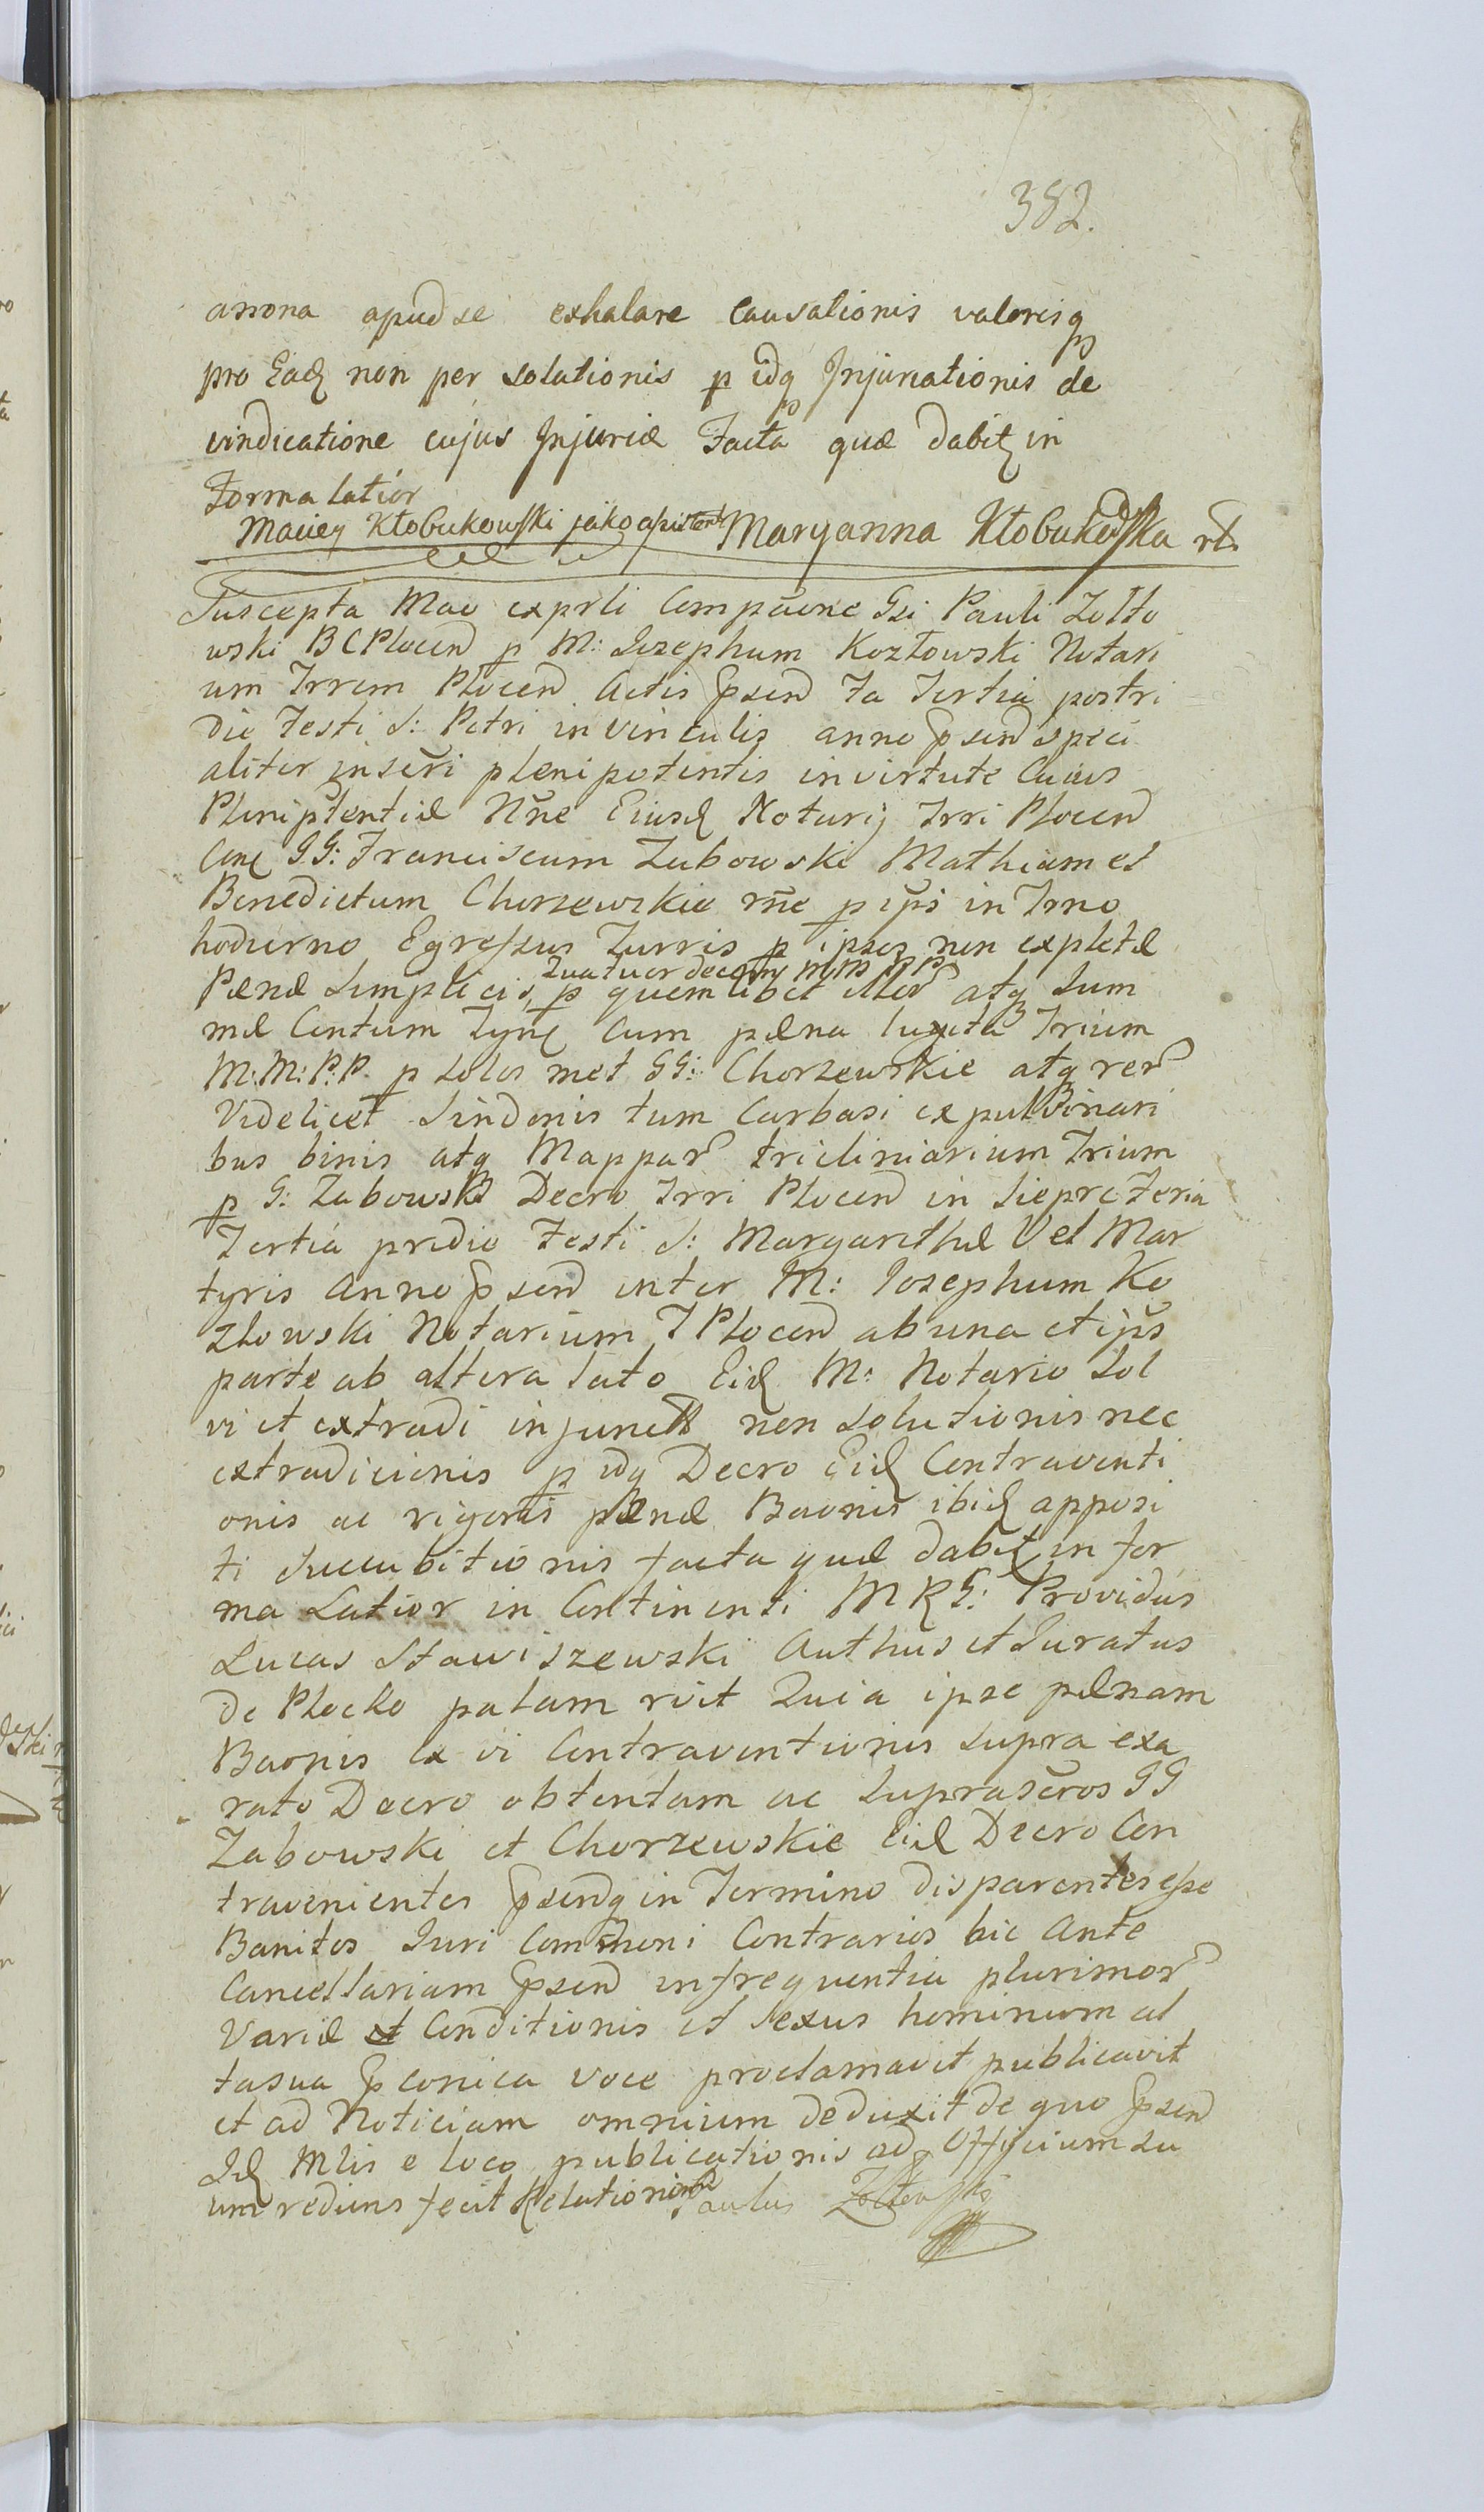 382.
annona apud se exhalare causationis valorisq
pro Eadẽ non per solutionis p idq Injuriationis de
vindicatione cujus Injuriæ Facta quæ dabit in
Forma latior
Maciey Kłobukowski jako assistent Maryanna Kłobukowska rt.
Suscepta Mao exprli Compãone Gsi Pauli Zołto
wski BCPlocen p M: Josephum Kozłowski Notari
um Trrem Plocen Actis p̃sen fa Tertia postri
die Festi S: Petri in vinculis anno p̃sen speci
aliter inseri plenipotentis in virtute Cuius
Plenip̃tentiæ Nñe Eiusd Notarij Trri Plocen
Cone GG: Franciscum Zabowski Mathiam et
Benedictum Chorzewskie rñe p ip̃s in Trno
hodierno Egressus Turris p ipsos non expletæ
Quatuordecem MM PP
Pænæ Simplicis, p quemlibet illor atq Sum
mæ Centum Tynf Cum pæna luxta Trium
M:M:P:P. p solos met GG: Chorzewskie atq rer
Videlicet Sindonis tum Carbasi ex pulvinari
bus binis atq Mappar tricliniarium Trium
p G: Zabowski Decro Trri Plocen in Sieprc Feria
Tertia pridie Festi S: Margarethæ V et Mar
tyris Anno p̃sen inter M: Josephum Ko
złowski Notarium T Plocen ab una et ip̃s
parte ab altera lato Eid M: Notario Sol
vi et extradi injunctæ non solutionis nec
extradicionis p idq Decro Eid Contraventi
onis ac rigoris pænæ Baonis ibid apposi
ti Succubitionis facta quæ dabit in for
ma Latior in Continenti MRG: Providus
Lucas Stawiszewski Authus et Juratus
de Plocko palam rvit Quia ipse pænam
Baonis Ex vi Contraventionis supra exa
rato Decro obtentam ac suprasc̃ros GG
Zabowski et Chorzewskie Eid Decro Con
travenientes p̃senq in Termino disparentes esse
Banitos Juri Communi Contrarios hic Ante
Cancellariam p̃sen in frequentia plurimor
Variæ Conditionis et Sexus hominum al
ta sua p̃conica voce proclamavit publicavit
et ad Noticiam omnium deduxit de quo p̃sen
Id Mlis e loco publicationis ad Officium Su
um rediens fecit Relationem Paulus Zołtowski